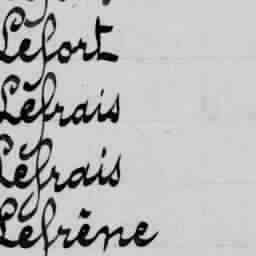 Lefort
Lefrais
Lefrais
Lefrêne